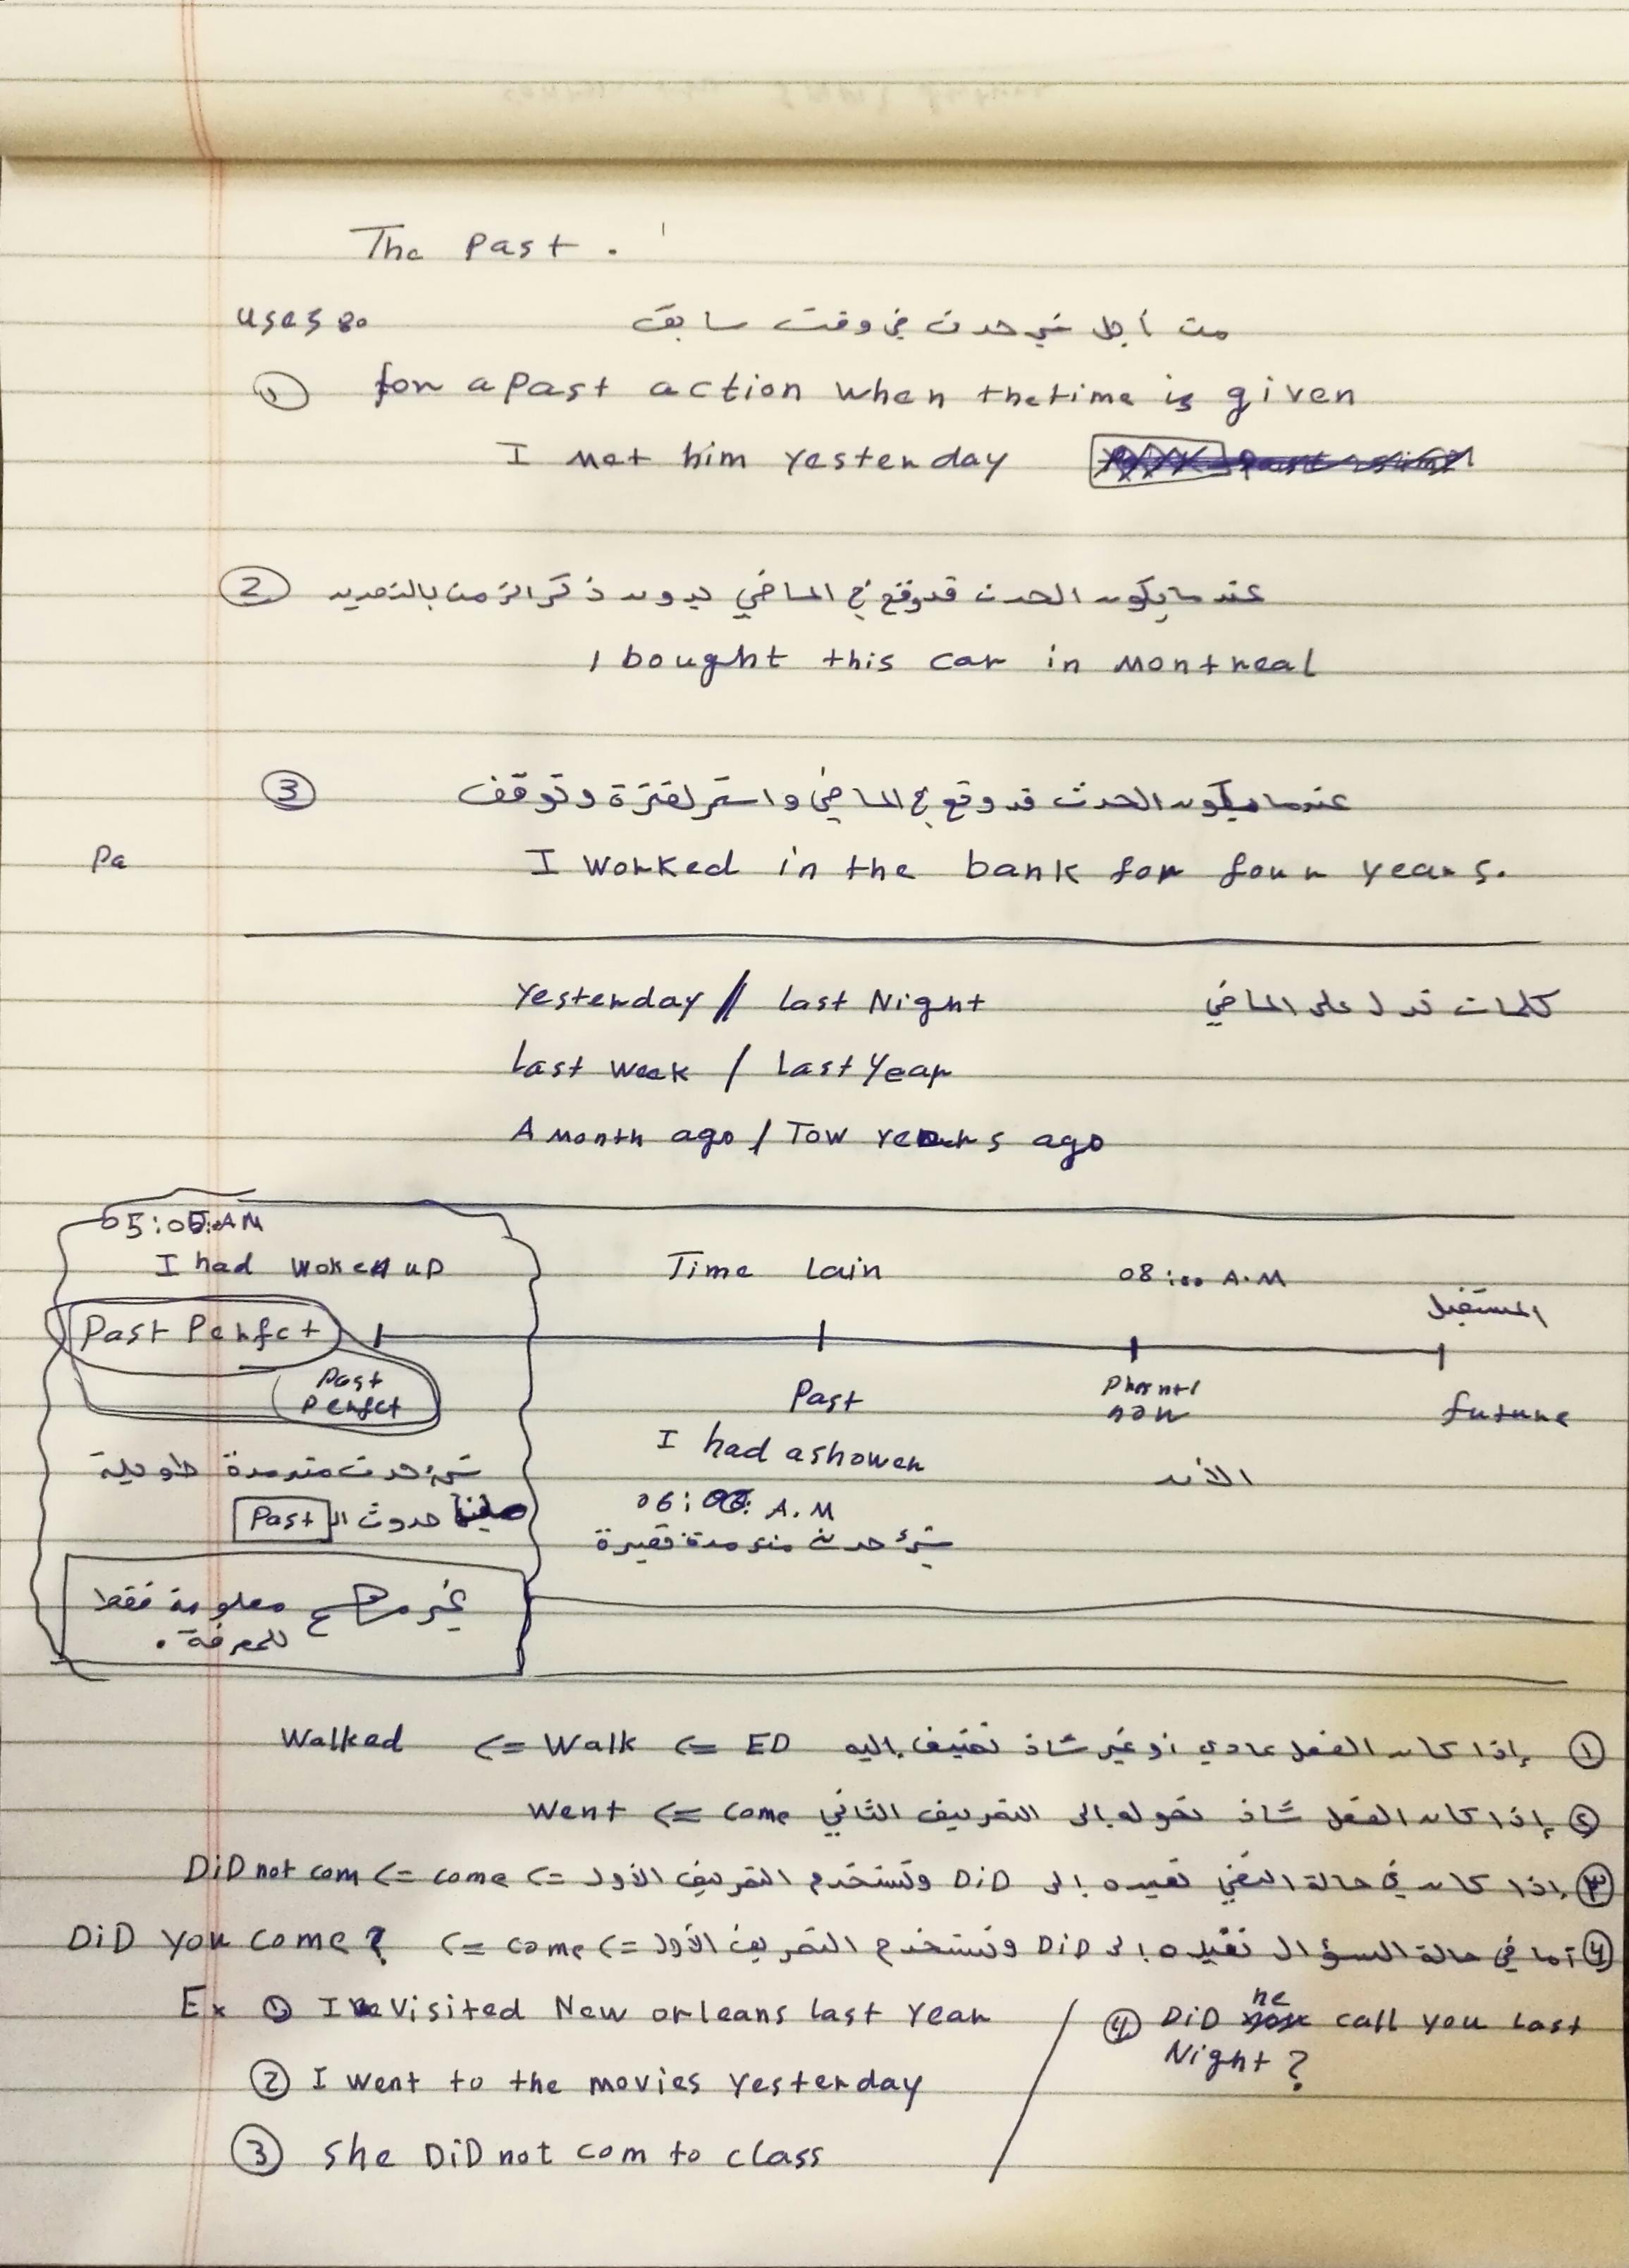 The Past.
uses:
من أجل شيء حدث في وقت سابق
① for a past action when the time is given
I met him yesterday
② عندما يكون الحدث قد وقع في الماضي بدون ذكر الزمن بالتحديد
I bought this car in Montreal
③ عندما يكون الحدث قد وقع في الماضي واستمر لفترة وتوقف
Pa
I worked in the bank for four years.
Yesterday // last Night
كلمات تدل على الماضي
Last week / Last Year
A month ago / Tow years ago
05:00 AM
I had woken up
Time Lain
08:00 A.M
المستقبل
Past Perfct
Past
Perfct
Past
now
future
I had a shower
الأن
06:00 A.M
شيء حدث منذ مدة قصيرة
شيء حدث منذ مدة طويلة
حدوث الـ Past
غير مهم معلومة فقط
للمعرفة .
① إذا كان الفعل عادي أو غير شاذ نضيف إليه ED <= Walk <= Walked
② إذا كان الفعل شاذ نحوله إلى التصريف الثاني come <= Went
③ إذا كان في حالة النفي نعيده إلى DiD ونستخدم التصريف الأول <= come <= DiD not com
④ أما في حالة السؤال نعيده إلى DiD ونستخدم التصريف الأول <= come <= DiD you come?
Ex ① I Visited New orleans last Year
② I went to the movies yesterday
③ she DiD not com to class
④ DiD he call you last
Night?